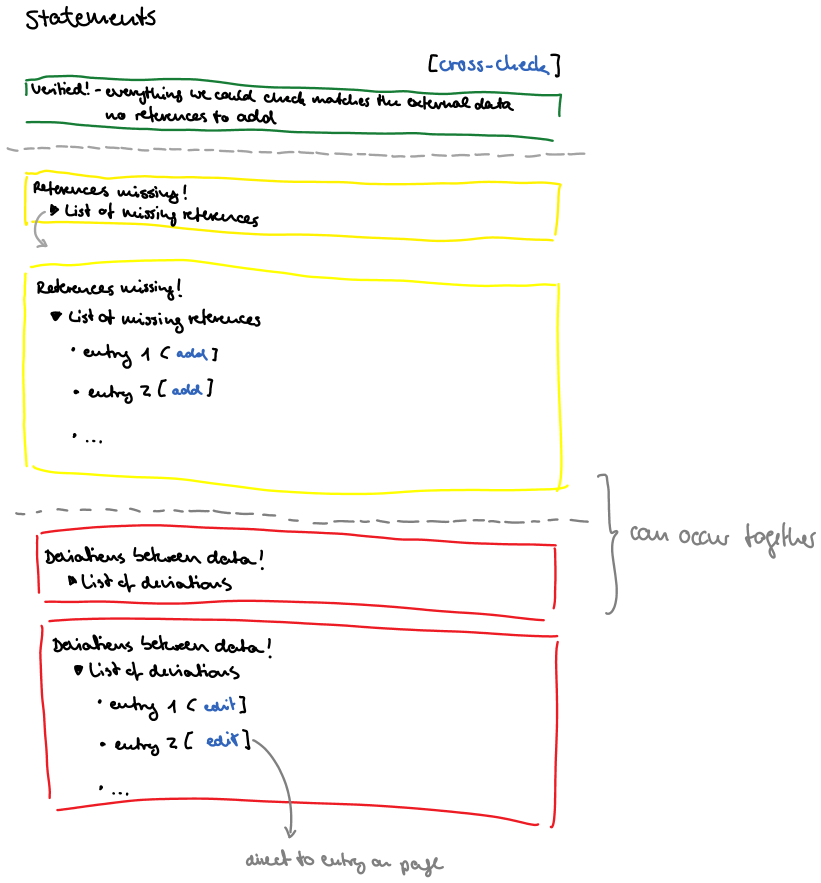 Statements
[cross-check]
Verified! - everything we could check matches the external data
no references to add
References missing!
▶ List of missing references
References missing!
▼ List of missing references
• entry 1 [add]
• entry 2 [add]
• ...
can occur together
Deviations between data!
▶ List of deviations
Deviations between data!
▼ List of deviations
• entry 1 [edit]
• entry 2 [edit]
• ...
direct to entry on page